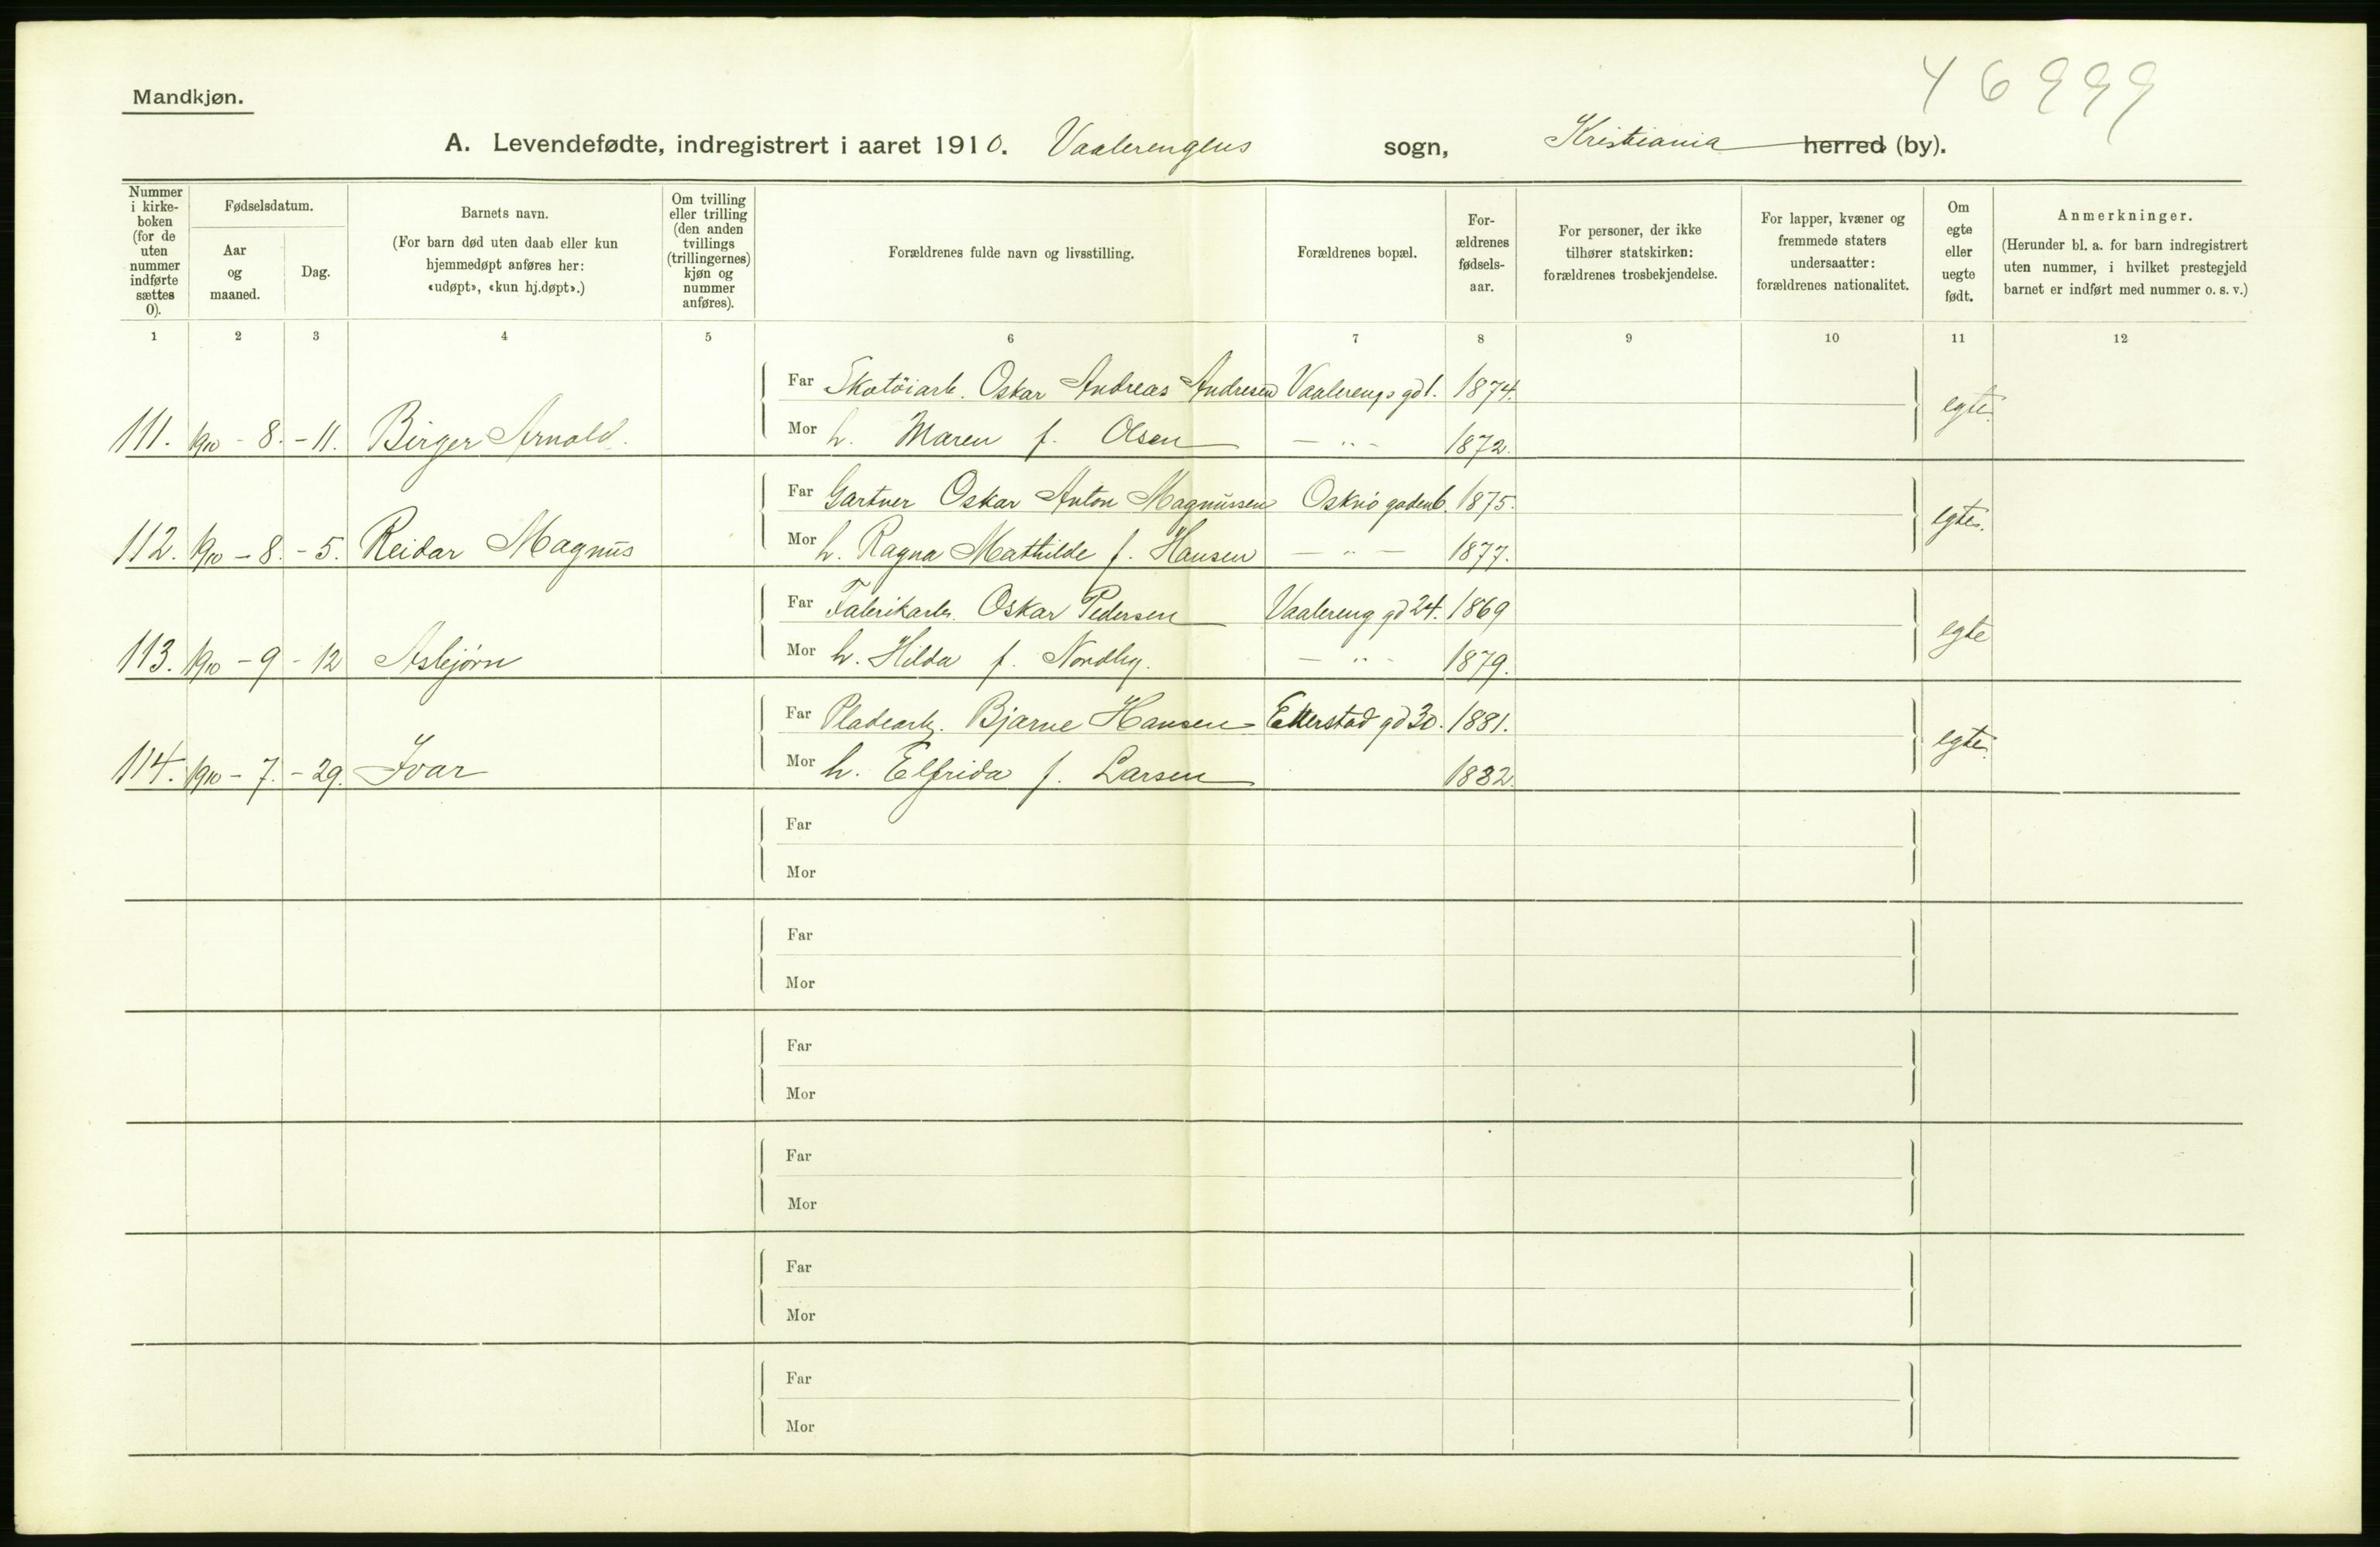 46999
Mandkjøn.
A. Levendefødte, indregistrert i aaret 1910. Vaalerengens sogn, Kristiania herred (by).
Nummer i kirke-boken (for de uten nummer indførte sættes 0).
Fødselsdatum.
Aar og maaned.
Dag.
Barnets navn.
(For barn død uten daab eller kun hjemmedøpt anføres her: «udøpt», «kun hj.døpt».)
Om tvilling eller trilling (den anden tvillings (trillingernes) kjøn og nummer anføres).
Forældrenes fulde navn og livsstilling.
Forældrenes bopæl.
For-ældrenes fødsels-aar.
For personer, der ikke tilhører statskirken: forældrenes trosbekjendelse.
For lapper, kvæner og fremmede staters undersaatter: forældrenes nationalitet.
Om egte eller uegte født.
Anmerkninger.
(Herunder bl. a. for barn indregistrert uten nummer, i hvilket prestegjeld barnet er indført med nummer o. s. v.)
1 2 3 4 5 6 7 8 9 10 11 12
Far Skotöiarb. Oskar Andreas Andresen Vaalerengs gd 1. 1874. egte.
111. 1910 - 8. - 11. Birger Arnold. Mor h. Maren f. Olsen — " - 1872.
Far Gartner Oskar Anton Magnussen Oskiö gaden 6. 1875. egte.
112. 1910 - 8. - 5. Reidar Magnus Mor h. Ragna Mathilde f. Hansen — " — 1877.
Far Fabrikarb. Oskar Pedersen Vaalereng gd 24. 1869 egte
113. 1910 - 9 - 12 Asbjörn Mor h. Hilda f. Nordby. — " - 1879.
Far Pladearb. Bjarne Hansen Etterstad gd 30. 1881. egte.
114. 1910 - 7. - 29. Ivar Mor h. Elfrida f. Larsen 1882.
Far
Mor
Far
Mor
Far
Mor
Far
Mor
Far
Mor
Far
Mor